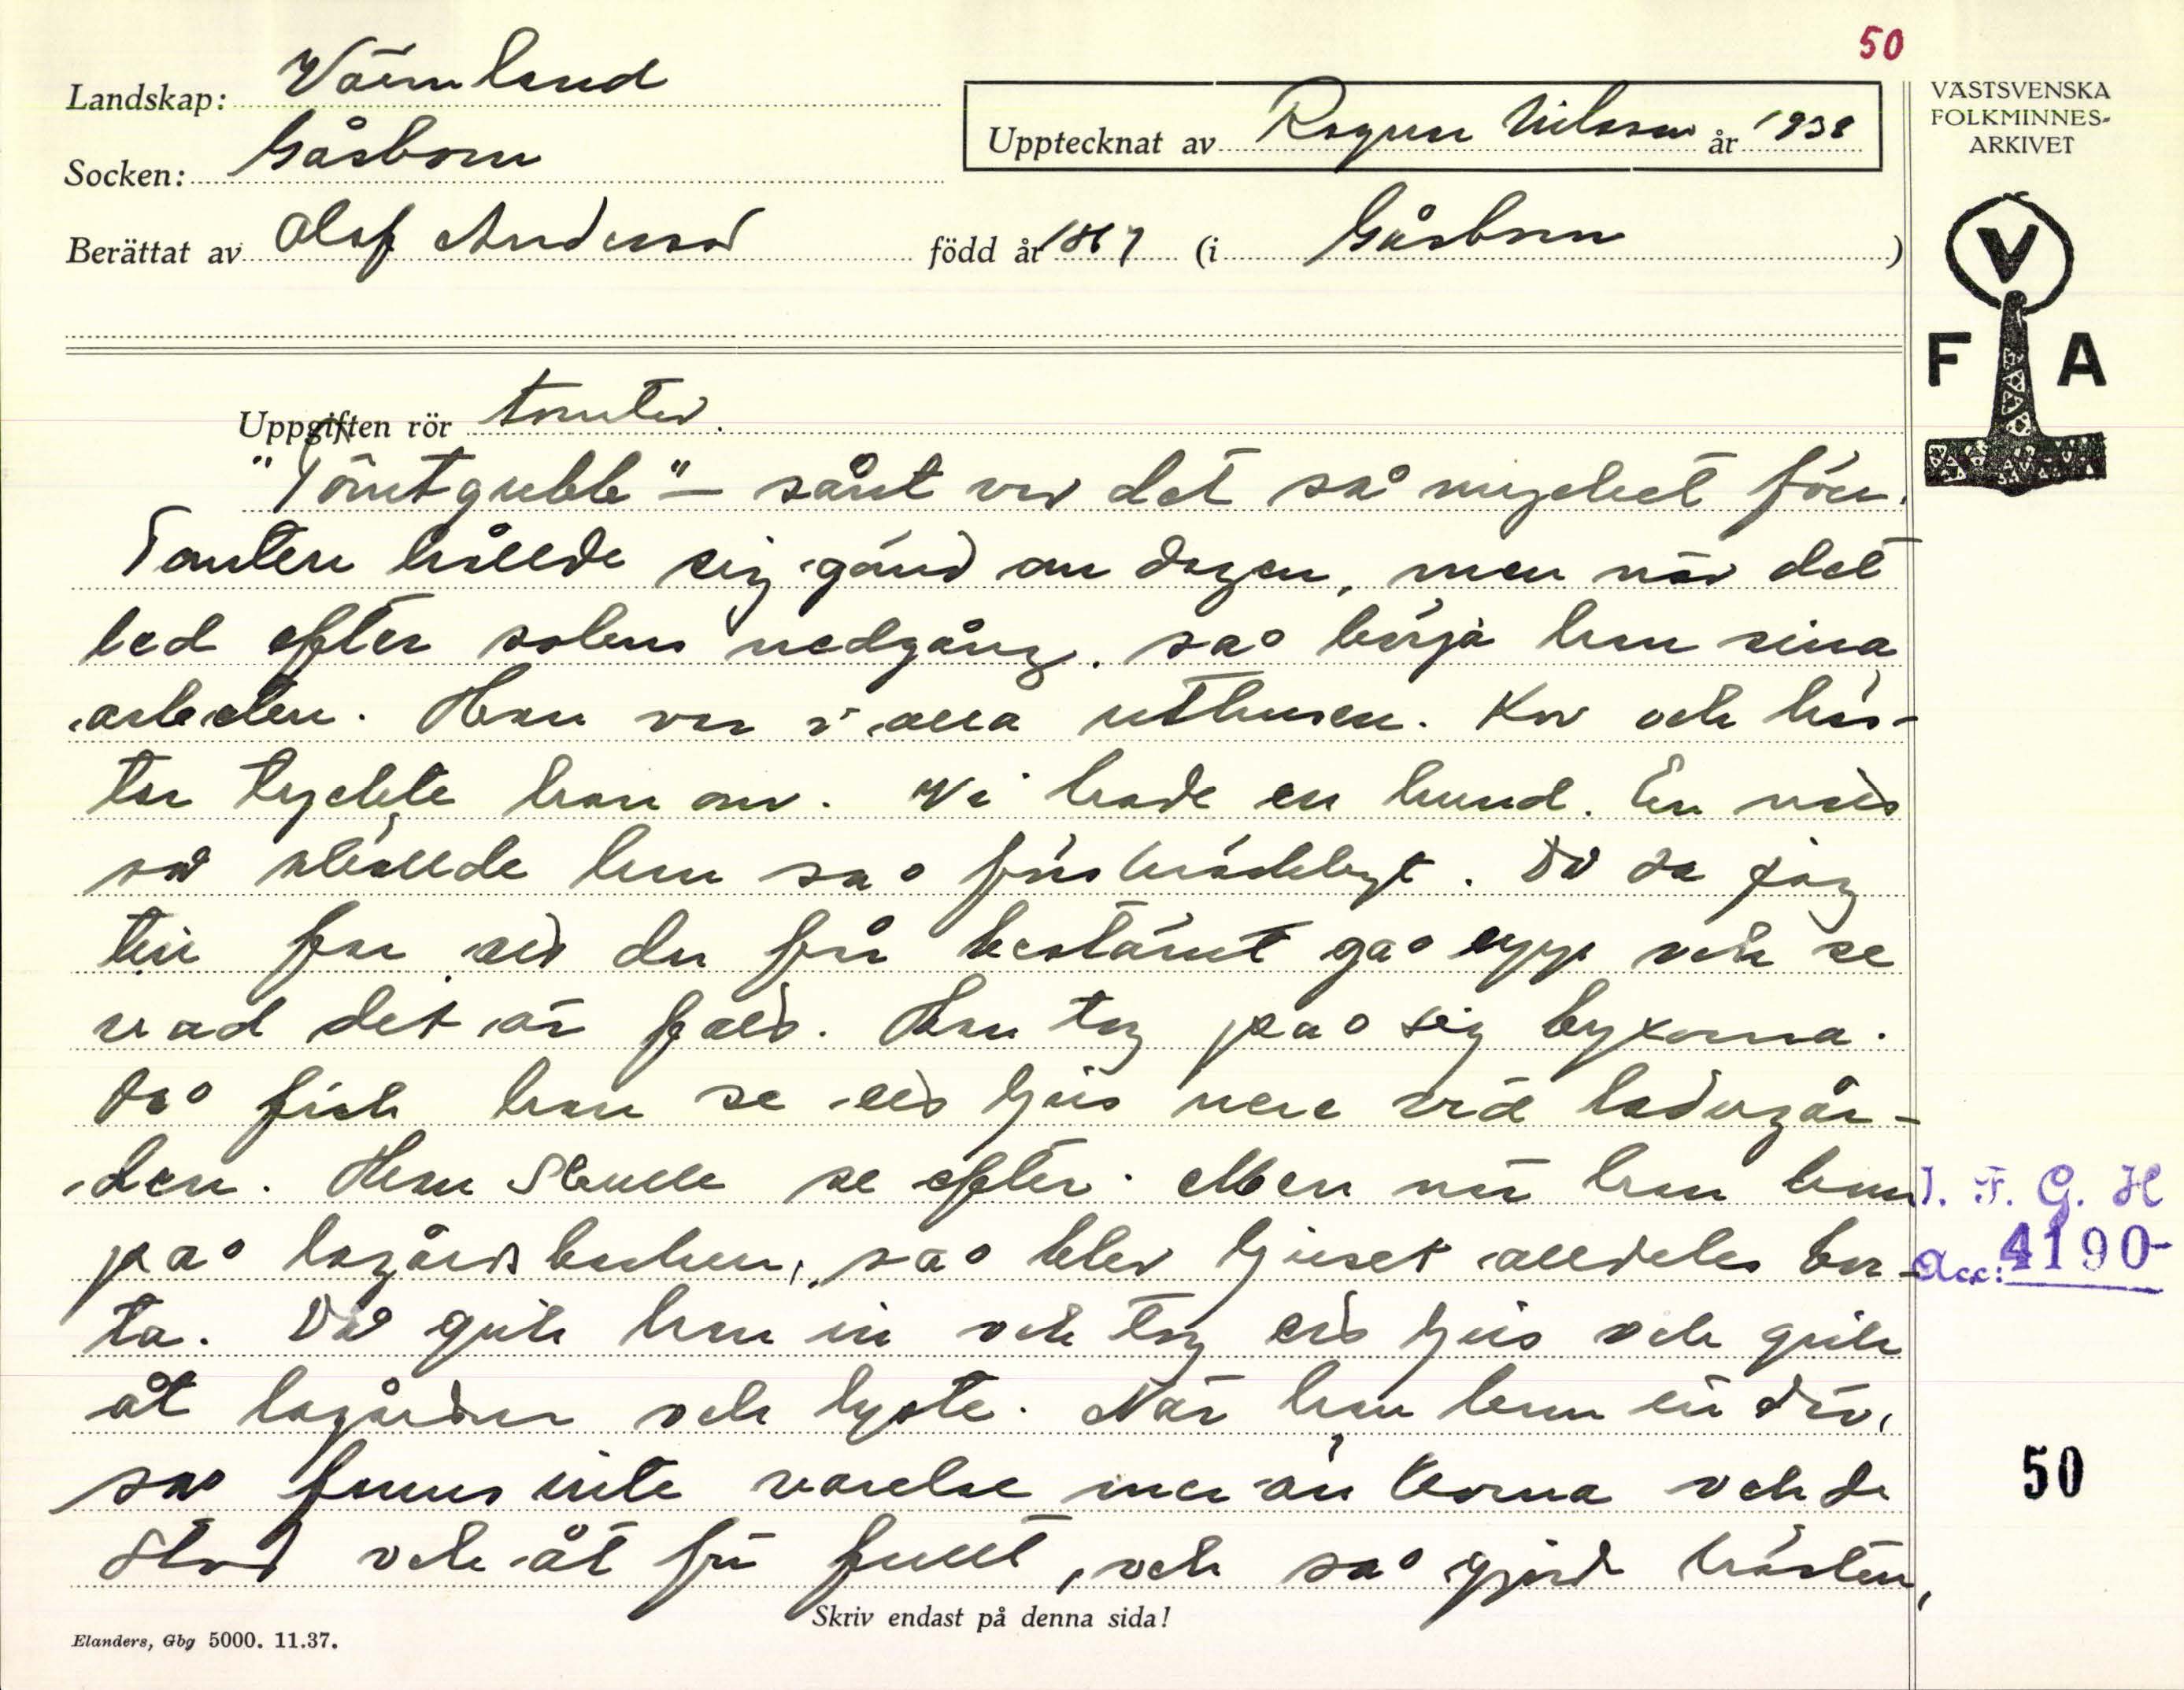 50
Landskap: Värmland
Socken: Gåsborn
Upptecknat av Ragnar Nilsson år 1938
Berättat av Olof Andersson född år 1867 (i Gåsborn)
VÄSTSVENSKA
FOLKMINNES-
ARKIVET
V
F A
Uppgiften rör tomten.
"Tömtgubbe" – sånt var det så mycket förr.
Tomten hållde sig gömd om dagen, men när det
led efter solens nedgång, så börja han sina
arbeten. Han var i alla uthusen. Kor och häs-
tar tyckte han om. Vi hade en hund. En natt
så skällde han så förskräckligt. Då sa jag
till far att du får bestämt gå upp och se
vad det är fatt. Han tog på sig byxorna.
Då fick han se ett ljus nere vid ladugår-
den. Han skulle se efter. Men när han kom
på lagårdsbacken, så blev ljuset alldeles bor-
ta. Då gick han in och tog ett ljus och gick
åt lagården och lyste. När han kom in där,
så fanns inte varelse mer än korna och de
stod och åt för fullt, och så gjorde hästen,
I. F. G. H
Acc: 4190-
50
Skriv endast på denna sida!
Elanders, Gbg 5000. 11.37.